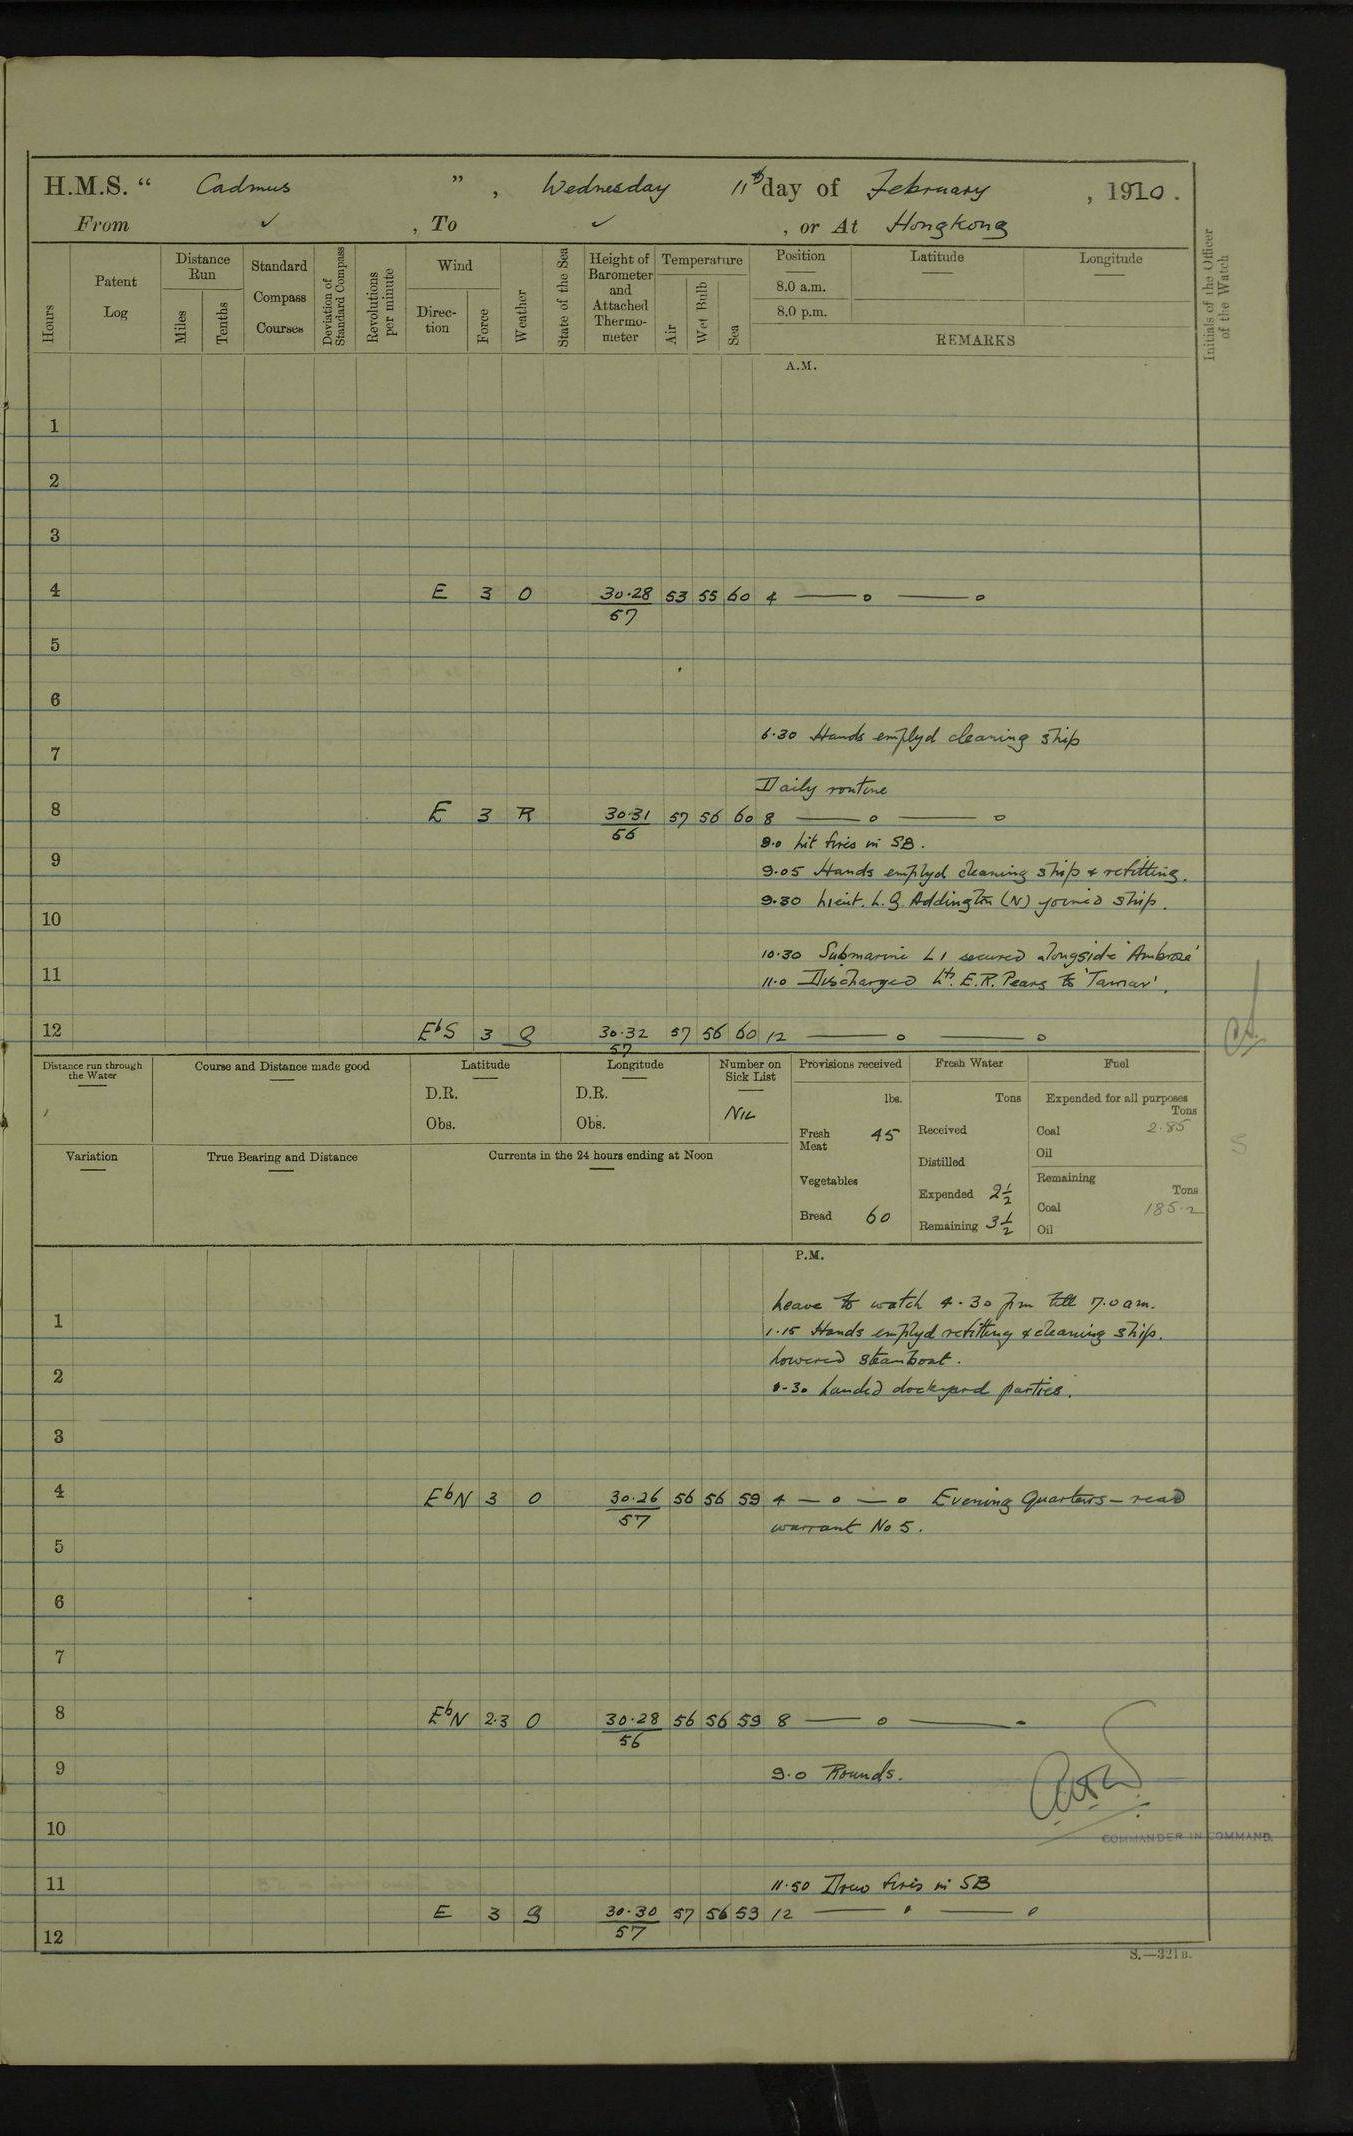 H.M.S. " Cadmus " , Wednesday 11th day of February , 1920 .
From ✓ , To ✓ , or At Hongkong
Hours
Patent Log
Distance Run
Miles
Tenths
Standard Compass Courses
Deviation of Standard Compass
Revolutions per minute
Wind
Direction
Force
Weather
State of the Sea
Height of Barometer and Attached Thermometer
Temperature
Air
Wet Bulb
Sea
Position
8.0 a.m.
8.0 p.m.
Latitude
Longitude
REMARKS
Initials of the Officer of the Watch
A.M.
1
2
3
4 E 3 O 30.28 53 55 60 4 — o — o
57
5
6
6.30 Hands employd cleaning ship
7
Daily routine
8 E 3 R 30.31 57 56 60 8 — o — o
56
9.0 Lit fires in SB.
9 9.05 Hands employd cleaning ship & refitting.
9.30 Lieut. L. G. Addington (N) joined ship.
10
10.30 Submarine L1 secured alongside 'Ambrose'
11 11.0 Discharged Lt. E.R. Pears to 'Tamar'.
12 EbS 3 g 30.32 57 56 60 12 — o — o
57
Distance run through the Water
Course and Distance made good
Latitude
D.R.
Obs.
Longitude
D.R.
Obs.
Number on Sick List
NIL
Provisions received
lbs.
Fresh Meat 45
Vegetables
Bread 60
Fresh Water
Tons
Received
Distilled
Expended 2½
Remaining 3½
Fuel
Expended for all purposes
Tons
Coal 2.85
Oil
Remaining
Tons
Coal 185.2
Oil
Variation
True Bearing and Distance
Currents in the 24 hours ending at Noon
P.M.
Leave to watch 4.30 pm till 7.0 am.
1 1.15 Hands employd refitting & cleaning ship.
Lowered steamboat.
2
Landed dockyard parties.
3
4 EbN 3 O 30.26 56 56 59 4 — o — o Evening Quarters - read
57
warrant No 5.
5
6
7
8 EbN 2.3 O 30.28 56 56 59 8 — o —
56
9 9.0 Rounds.
10
COMMANDER IN COMMAND.
11 11.50 Drew fires in SB
E 3 g 30.30 57 56 59 12 — o — o
57
12
S.—321B.